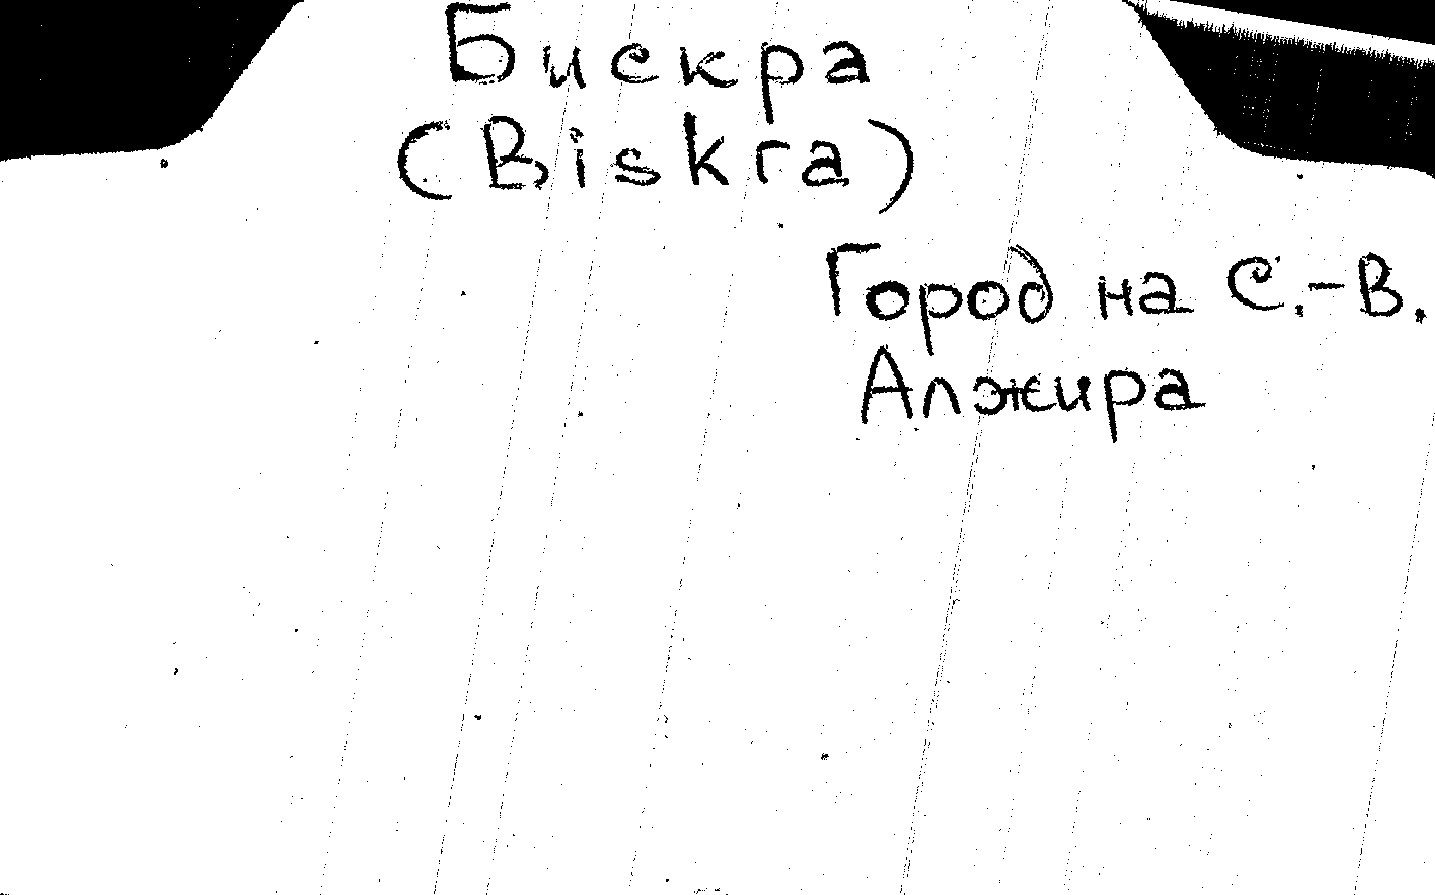 Бискра
(Biskra)
Город на С.-В.
Алжира